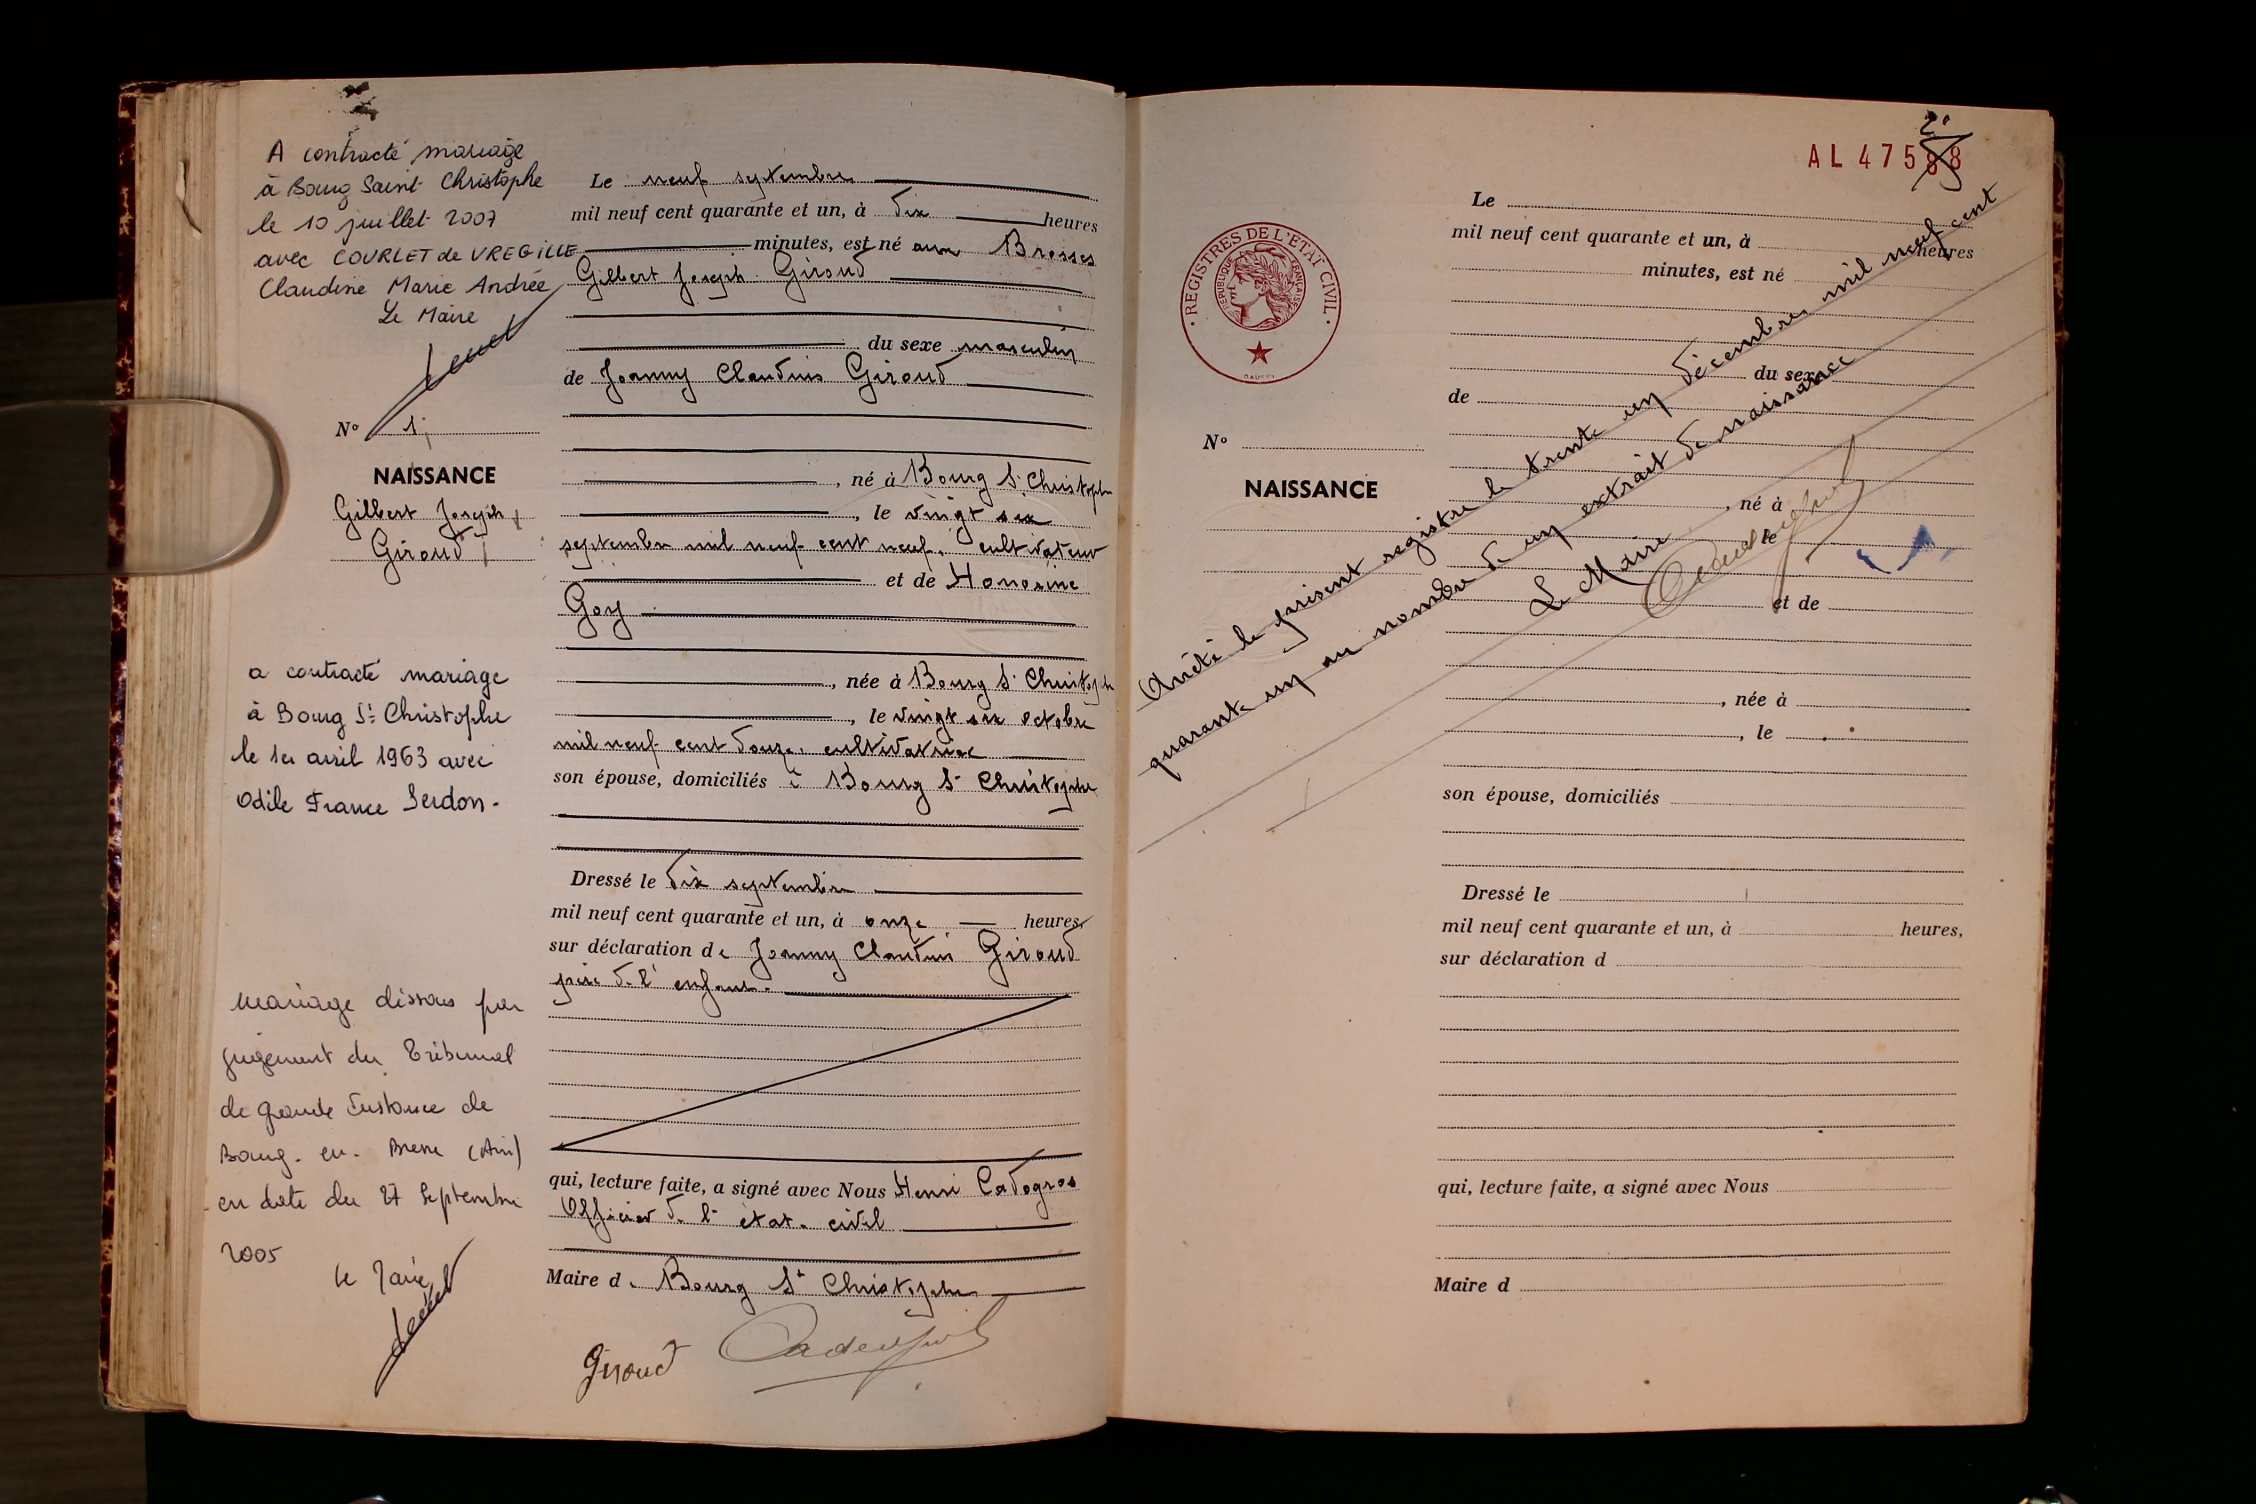 A contracté mariage
à Bourg Saint Christophe
le 10 juillet 2007
avec COURLET de VREGILLE
Claudine Marie Andrée
Le Maire
N° 1
NAISSANCE
Gilbert Joseph
Giroud
a contracté mariage
à Bourg St Christophe
le 1er avril 1963 avec
Odile France Serdon.
Mariage dissous par
jugement du Tribunal
de grande Instance de
Bourg-en-Bresse (Ain)
en date du 27 Septembre
2005
le Maire
Le neuf septembre
mil neuf cent quarante et un, à dix heures
minutes, est né aux Brosses
Gilbert Joseph Giroud
du sexe masculin
de Joanny Claudius Giroud
, né à Bourg St Christophe
, le vingt six
septembre mil neuf cent neuf, cultivateur
et de Honorine
Goy
, née à Bourg St Christophe
, le vingt six octobre
mil neuf cent douze, cultivatrice
son épouse, domiciliés à Bourg St Christophe
Dressé le dix septembre
mil neuf cent quarante et un, à onze heures,
sur déclaration de Joanny Claudius Giroud
père de l'enfant.
qui, lecture faite, a signé avec Nous Henri Cadogros
Officier de l'état-civil
Maire de Bourg St Christophe
Giroud
AL 47588
REGISTRES DE L'ETAT CIVIL
REPUBLIQUE FRANÇAISE
N°
NAISSANCE
Le
mil neuf cent quarante et un, à heures
minutes, est né
du sexe
de
, né à
, le
et de
, née à
, le
son épouse, domiciliés
Dressé le
mil neuf cent quarante et un, à heures,
sur déclaration d
qui, lecture faite, a signé avec Nous
Maire d
Arrêté le présent registre le trente un décembre mil neuf cent
quarante un au nombre de un extrait de naissance
Le Maire